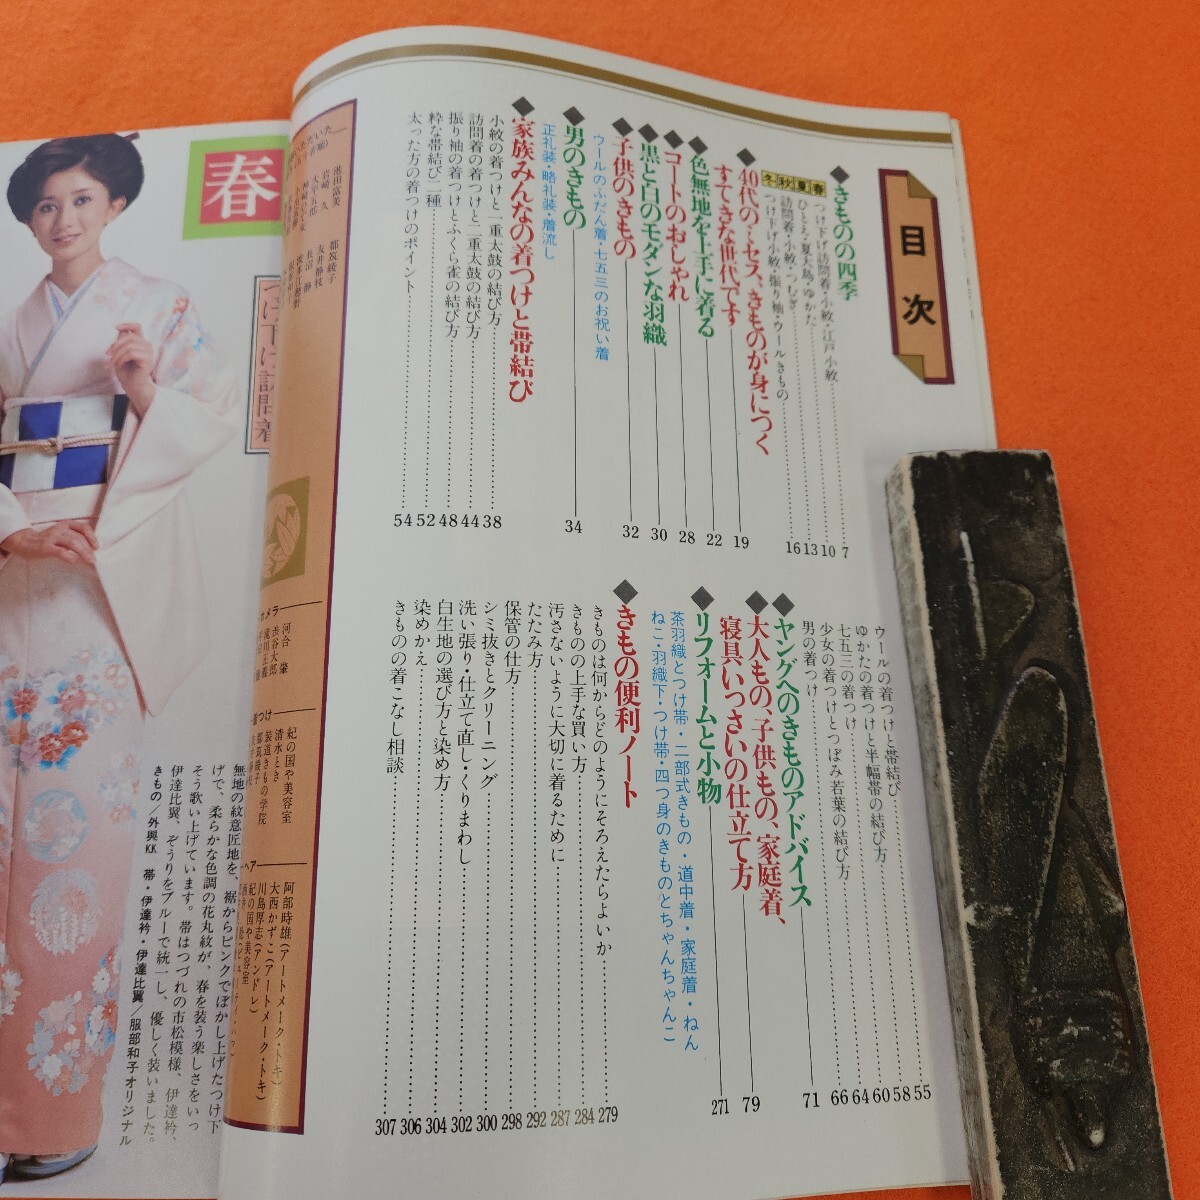 目次
◆きものの四季
春 つけ下げ訪問着・小紋・江戸小紋 7
夏 ひとえ・夏大島・ゆかた 10
秋 訪問着・小紋・つむぎ 13
冬 つけ下げ小紋・振り袖・ウールきもの 16
◆40代のミセス、きものが身につく
すてきな世代です 19
◆色無地を上手に着る 22
◆コートのおしゃれ 28
◆黒と白のモダンな羽織 30
◆子供のきもの 32
ウールのふだん着・七五三のお祝い着
◆男のきもの 34
正礼装・略礼装・着流し
◆家族みんなの着つけと帯結び
小紋の着つけと一重太鼓の結び方 38
訪問着の着つけと二重太鼓の結び方 44
振り袖の着つけとふくら雀の結び方 48
粋な帯結び二種 52
太った方の着つけのポイント 54
ウールの着つけと帯結び 55
ゆかたの着つけと半幅帯の結び方 58
七五三の着つけ 60
少女の着つけとつぼみ若葉の結び方 64
男の着つけ 66
◆ヤングへのきものアドバイス 71
◆大人もの、子供もの、家庭着、
寝具いっさいの仕立て方 79
◆リフォームと小物 271
茶羽織とつけ帯・二部式きもの・道中着・家庭着・ねん
ねこ・羽織下・つけ帯・四つ身のものとちゃんちゃんこ
◆きもの便利ノート
きものは何からどのようにそろえたらよいか 279
きものの上手な買い方 284
汚さないように大切に着るために 287
たたみ方 292
保管の仕方 298
シミ抜きとクリーニング 300
洗い張り・仕立て直し・くりまわし 302
白生地の選び方と染め方 304
染めかえ 306
きものの着こなし相談 307
池田富美
岩崎 久
都筑綾子
友井静枝
長沼 静
カメラ
河合 肇
渋谷太郎
着つけ
紀の国や美容室
清水とき
装道きもの学院
都筑綾子
ヘア
阿部時雄(アートメーク・トキ)
大西かずこ(アートメーク・トキ)
川島厚志(アンドレ)
紀の国や美容室
春
つけ下げ訪問着
無地の紋意匠地を、裾からピンクでぼかし上げたつけ下
げで、柔らかな色調の花丸紋が、春を装う楽しさをいっ
そう歌い上げています。帯はつづれの市松模様、伊達衿、
伊達比翼、ぞうりをブルーで統一し、優しく装いました。
きもの/外興KK 帯・伊達衿・伊達比翼/服部和子オリジナル